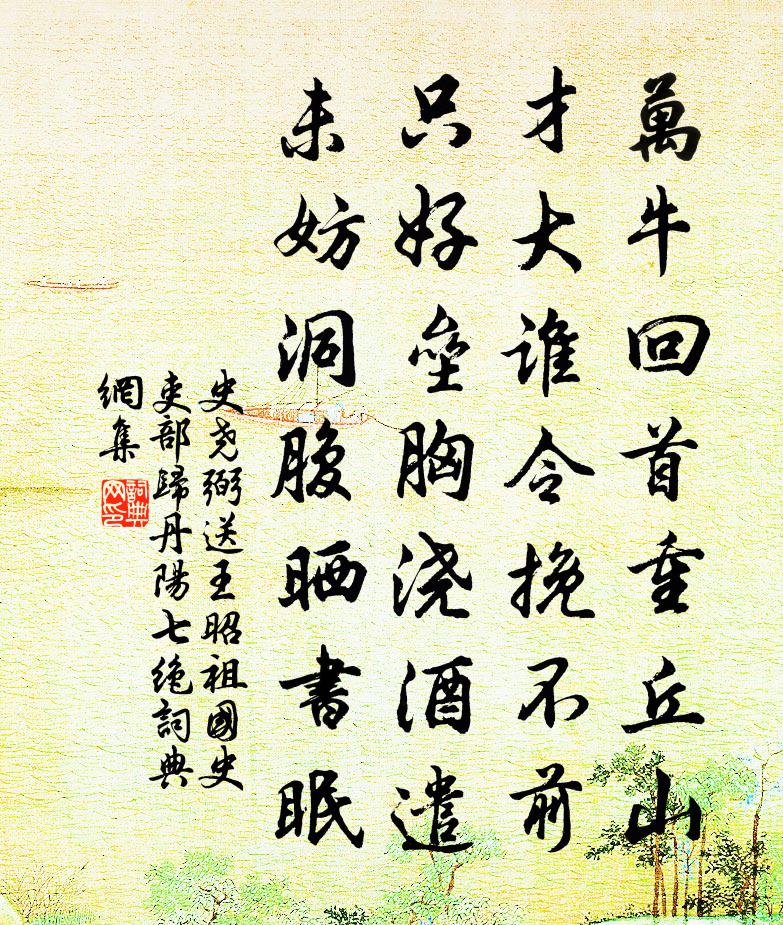 萬牛回首重丘山
才大誰令挽不前
只好壘胸浇酒遣
未妨洞腹晒書眠
史尧弼送王昭祖國史
吏部歸丹陽七絶詞典
網集
詞典
网印